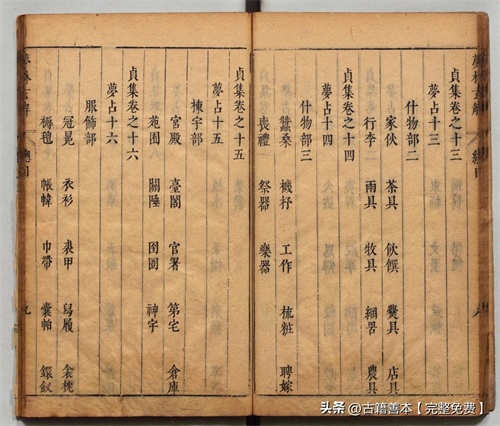 夢林玄解
總目
貞集卷之十三
夢占十三
什物部二
家伙 茶具 飲饌 爨具 店具
行李 雨具 牧具 網罟 農具
貞集卷之十四
夢占十四
什物部二
蠶桑 機杼 工作 梳粧 聘嫁
喪禮 祭器 樂器
貞集卷之十五
夢占十五
棟宇部
宮殿 臺閣 官署 第宅 倉庫
苑囿 關陲 囹圄 神宇
貞集卷之十六
夢占十六
服飾部
冠冕 衣衫 裘甲 舄履 衾枕
帳幃 巾帶 囊帕 鐶釵
夢林玄解
總目
九
头条 @古籍善本【完整免费】